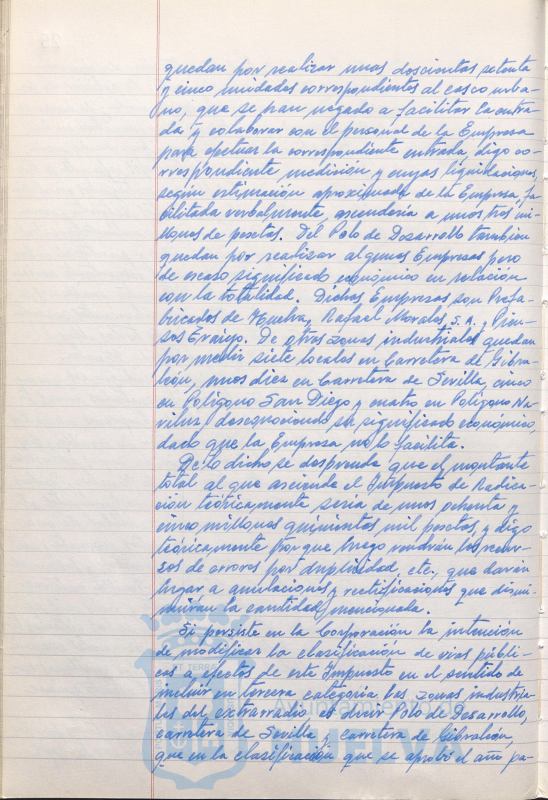 quedan por realizar unas doscientas setenta
y cinco unidades correspondientes al casco urba-
no, que se han negado a facilitar la entra-
da y colaborar con el personal de la Empresa
para efectuar la correspondiente entrada, digo co-
rrespondiente medición y cuyas liquidaciones,
según estimación aproximada de la Empresa, fa-
cilitada verbalmente, ascendería a unos tres mi-
llones de pesetas. Del Polo de Desarrollo tambien
quedan por realizar algunas Empresas pero
de escaso significado económico en relación
con la totalidad. Dichas Empresas son Prefa-
bricados de Huelva, Rafael Morales, S.A. y Pien-
sos Eraijo. De otras zonas industriales quedan
por medir siete locales en Carretera de Gibra-
león, unos diez en Carretera de Sevilla, cinco
en Polígono San Diego y cuatro en Polígono Na-
viluz, desconociendo su significado económico,
dado que la Empresa no lo facilita.
De lo dicho se desprende que el montante
total al que asciende el Impuesto de Radica-
ción teóricamente sería de unos ochenta y
cinco millones quinientas mil pesetas, y digo
teóricamente porque luego vendrán los recur-
sos de errores por duplicidad, etc., que darán
lugar a anulaciones y rectificaciones que dismi-
nuirán la cantidad mencionada.
Si persiste en la Corporación la intención
de modificar la clasificación de vias públi-
cas a efectos de este Impuesto en el sentido de
incluir en tercera categoría las zonas industria-
les del extrarradio es decir Polo de Desarrollo,
carretera de Sevilla y carretera de Gibraleón,
que en la clasificación que se aprobó el año pa-
Ayuntamiento de
HUELVA